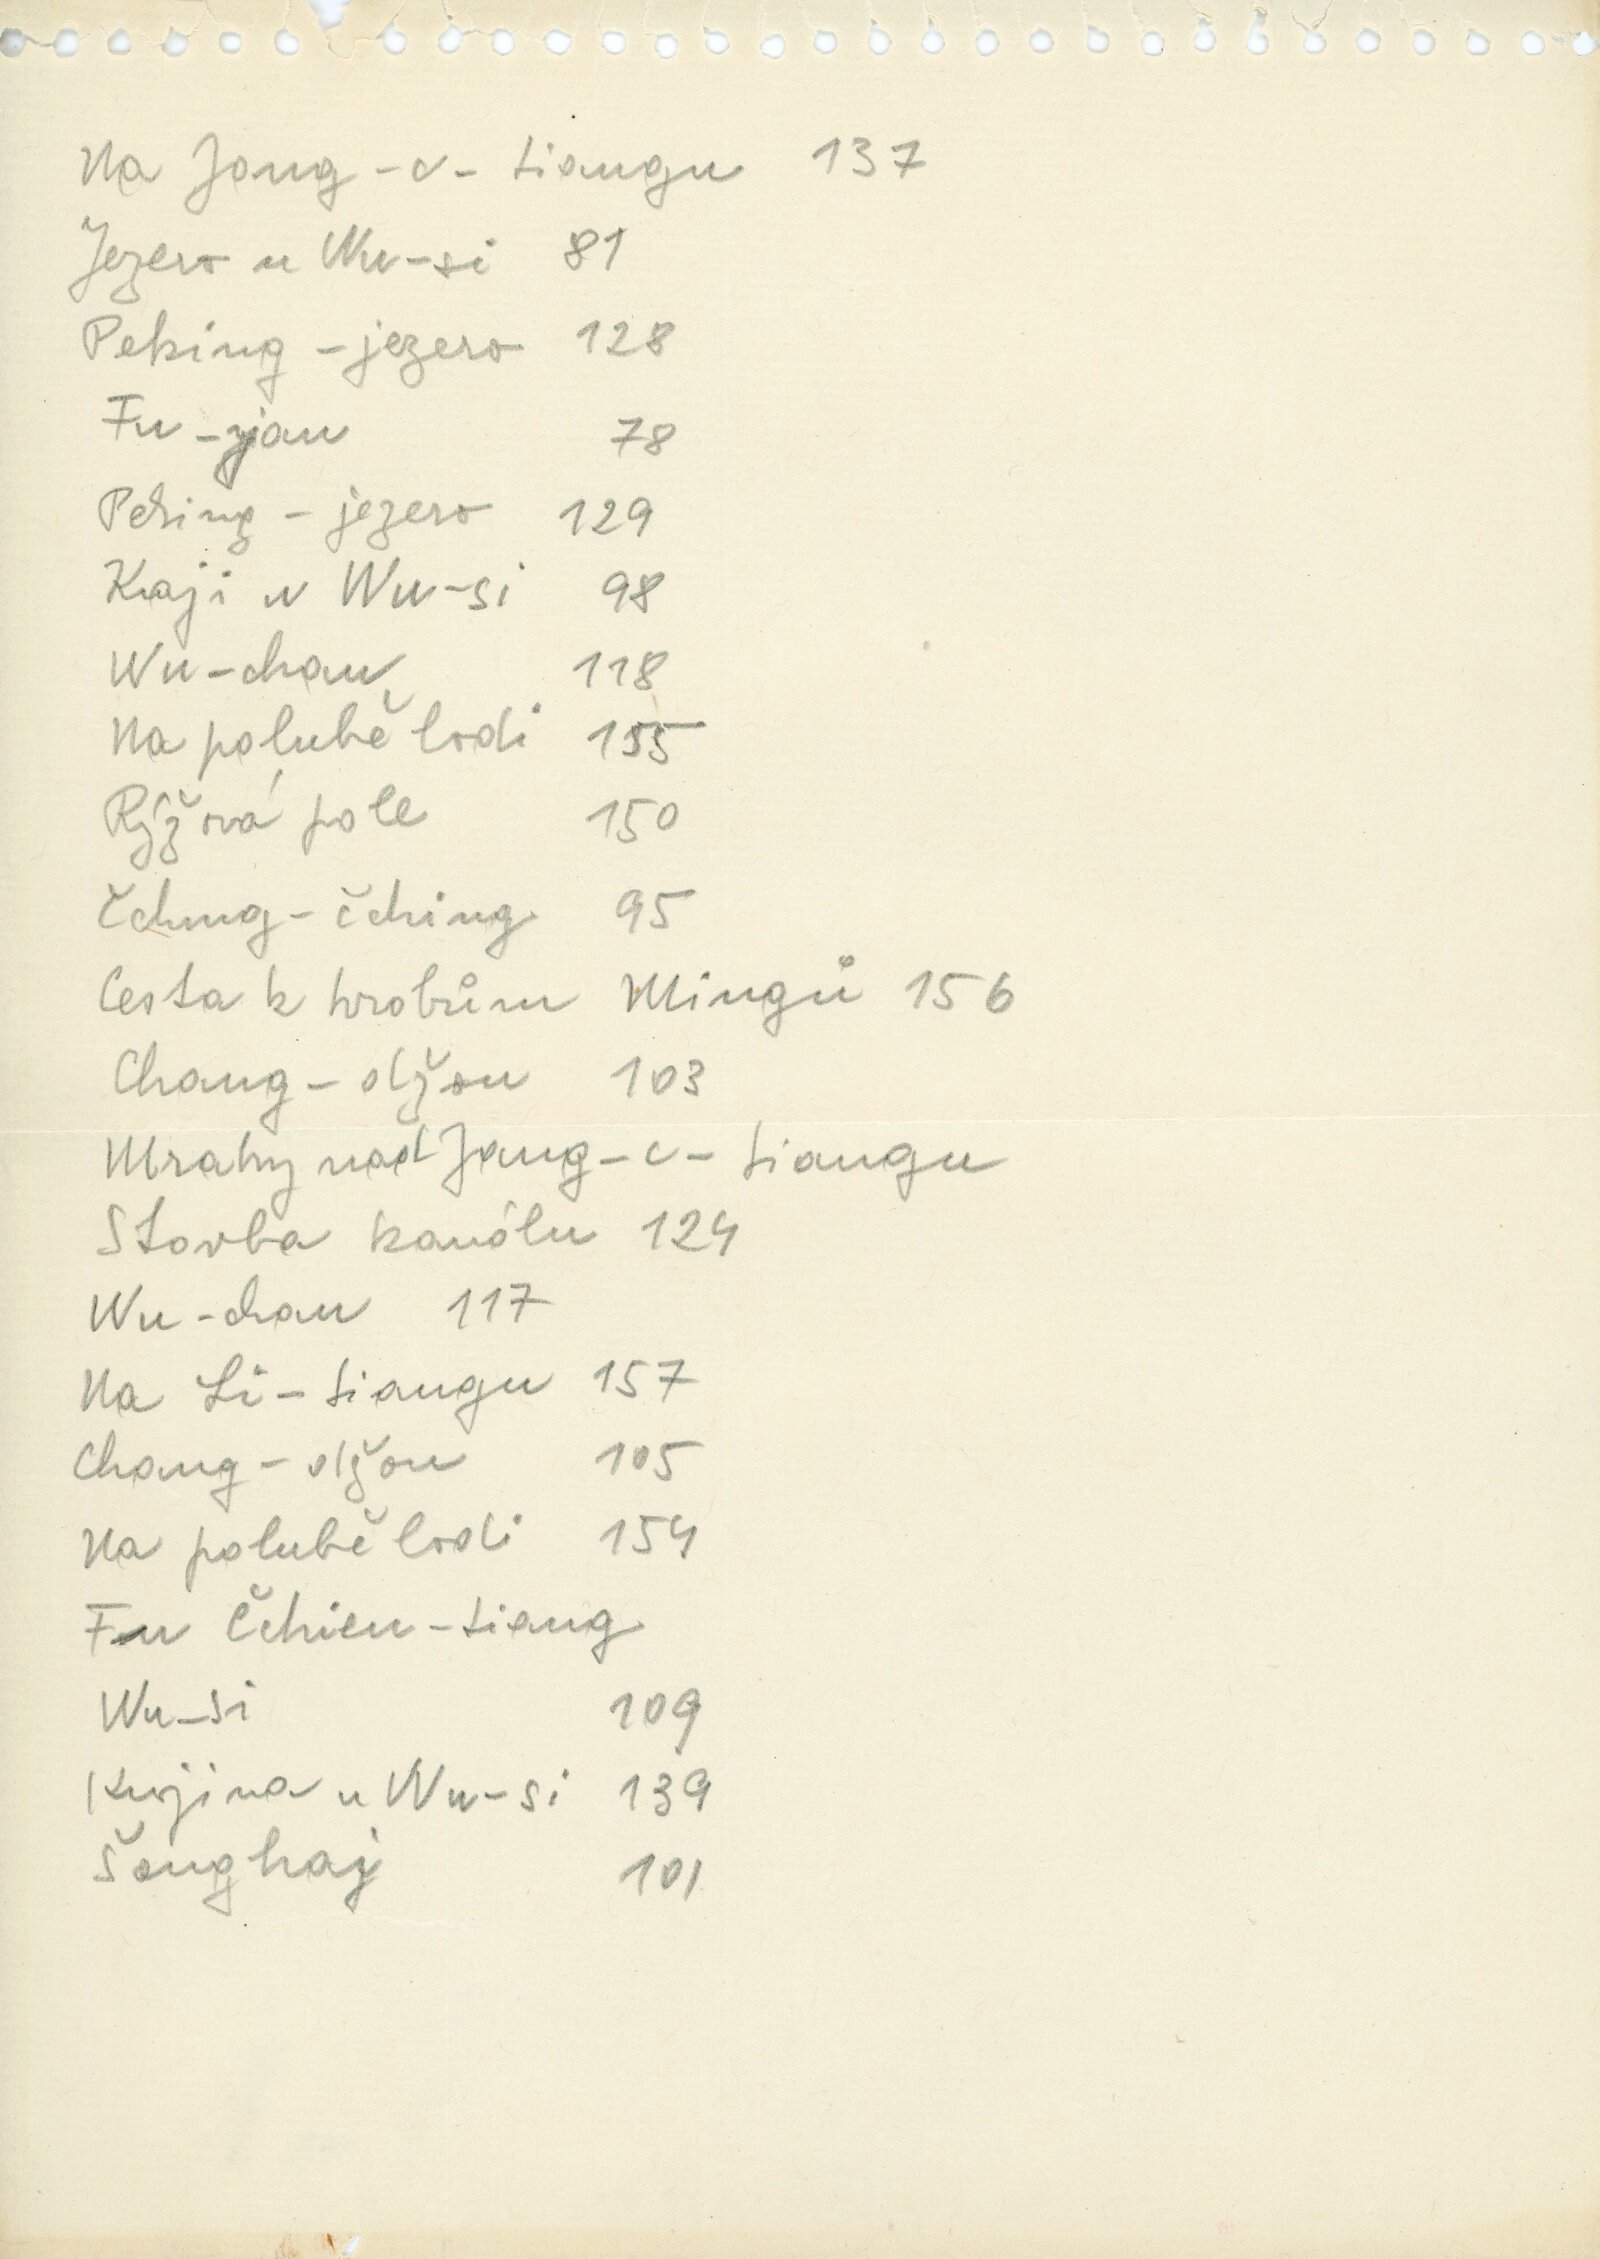 Na Jang-c-ťiangu 137
Jezero u Wu-si 81
Peking - jezero 128
Fu-jan 78
Peking - jezero 129
Kraji u Wu-si 98
Wu-chan 118
Na palubě lodi 155
Rýžová pole 150
Čchung-čching 95
Cesta k hrobům Mingů 156
Chang-džou 103
Mraky nad Jang-c-ťiangu
Stavba kanálu 124
Wu-chan 117
Na Li-ťiangu 157
Chang-džou 105
Na palubě lodi 154
Fu Čchien-ťiang
Wu-si 109
Krajina u Wu-si 139
Šanghaj 101